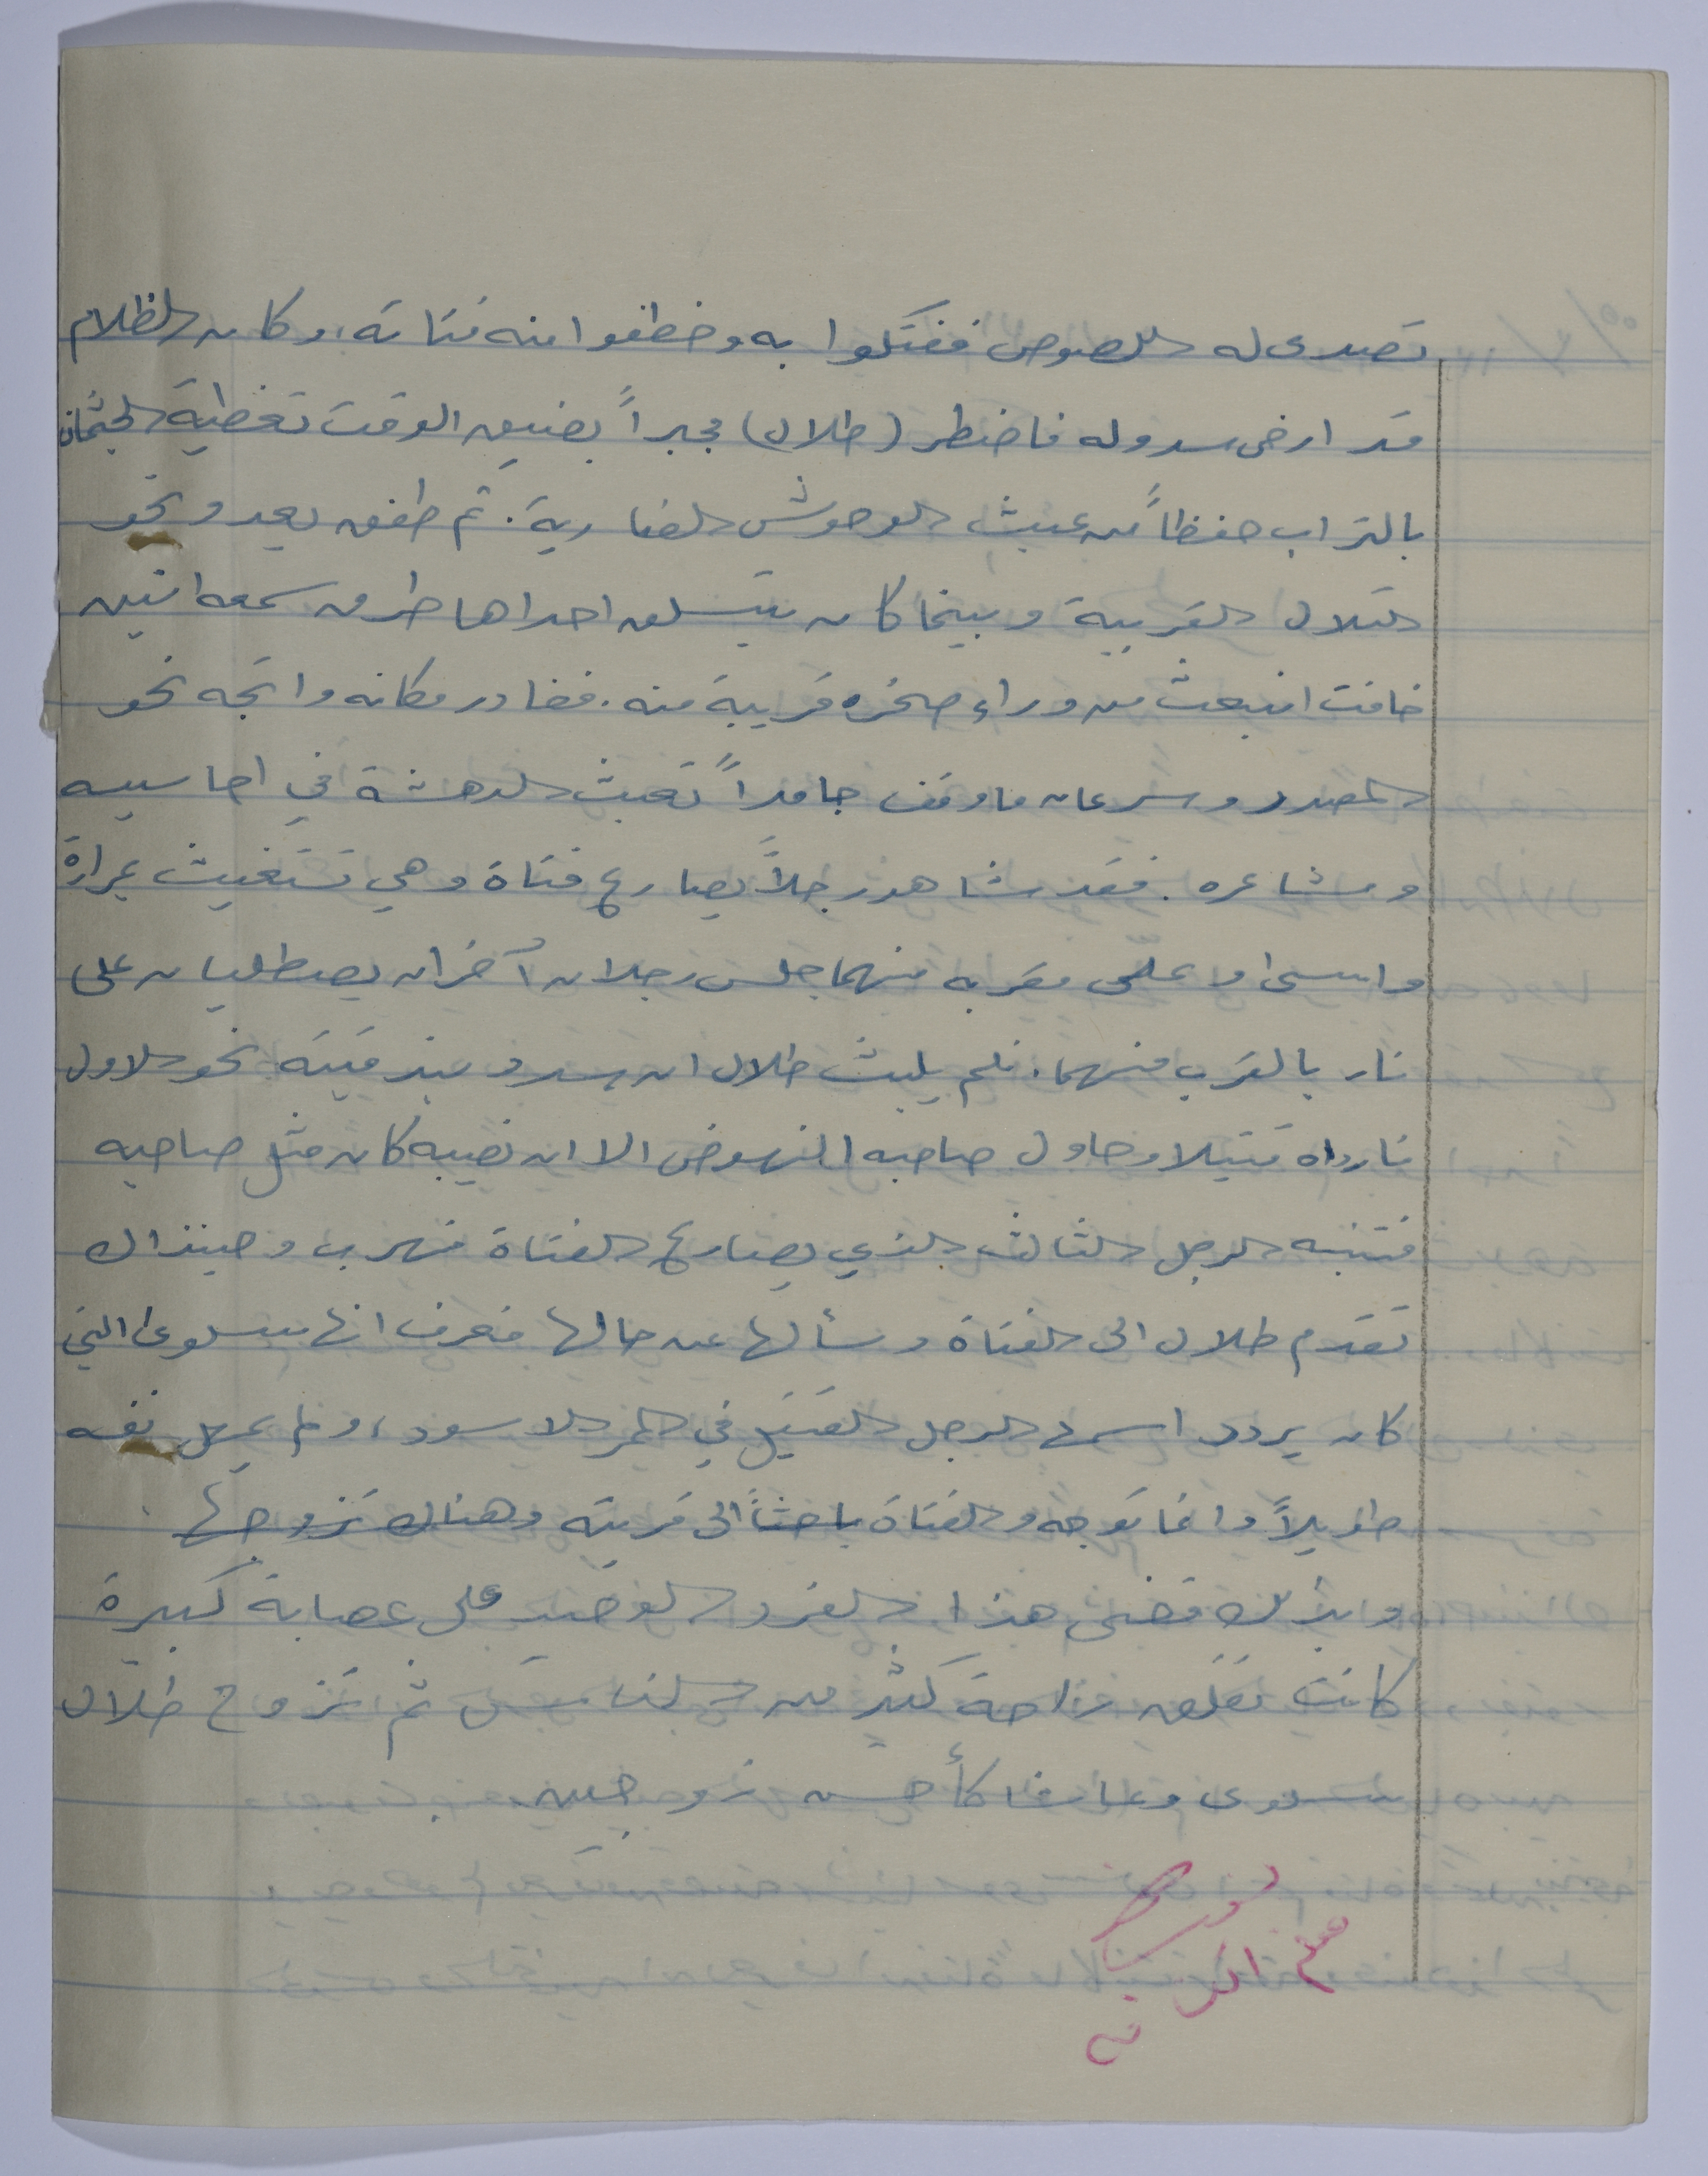 تصدى له اللصوص ففتكوا به وخطفوا منه فتاته، وكان الظلام
قد ارخى سدوله فاضطر (طلال) مجبراً بضيق الوقت تغطية الجثمان
بالتراب حفظاً من عبث الوحوش الضارية. ثم طفق يعدو نحو
التلال القريبة وبينما كان يتسلق احداها طرق سمعه انين
خافت انبعث من وراء صخره قريبة منه. فغادر مكانه واتجه نحو
المصدر وسرعان ما وقف جامداً تعبث الدهشة في احاسيسه
ومشاعره. فقد شاهد رجلاً يصارع فتاة وهي تستغيث بمرارة
واسى وعلى مقربه منهما جلس رجلان آخران يصطليان على
نار بالقرب منهما. فلم يلبث طلال ان سدد بندقيته نحو الاول
فارداه قتيلا وحاول صاحبه النهوض الا ان نصيبه كان مثل صاحبه
فتنبه الرجل الثالث الذي يصارع الفتاة فهرب وحينذاك
تقدم طلال الى الفتاة وسألها عن حالها فعرف انها سلوى التي
كان يردد اسمها الرجل القتيل في الممر الاسود، ولم يمهل نفسه
طويلاً وانما توجه والفتاة باحثاً الى قريته وهناك تزوجها
وبذلك قضى هذا الفرد الوحيد على عصابة كبيرة
كانت تقلق راحة كثير من الناس ثم تزوج طلال
سلوى وعاشا كأحسن زوجين.